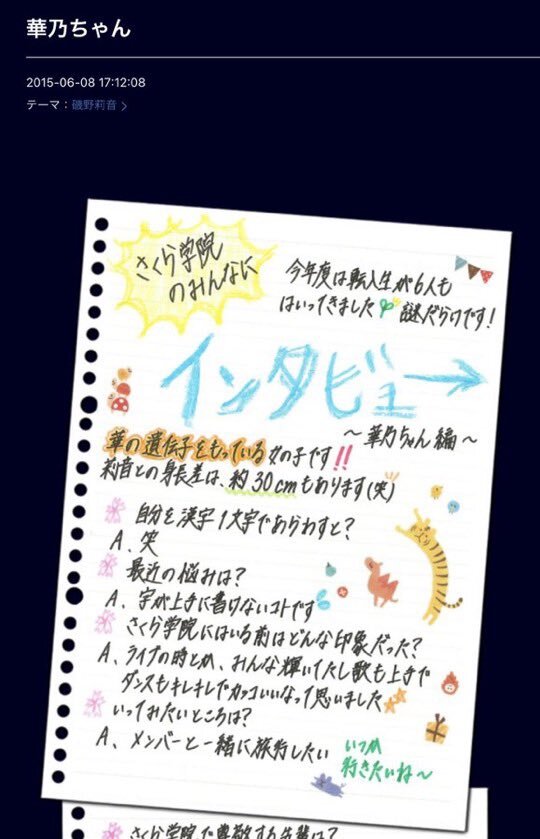 華乃ちゃん
2015-06-08 17:12:08
テーマ：磯野莉音
さくら学院
のみんなに
今年度は転入生が6人も
はいってきました 謎だらけです!
インタビュー→
〜華乃ちゃん編〜
華の遺伝子をもっている女の子です!!
莉音との身長差は、約30cmもあります(笑)
自分を漢字1文字であらわすと?
A、笑
最近の悩みは?
A、字が上手に書けないコトです
さくら学院にはいる前はどんな印象だった?
A、ライブの時とか、みんな輝いてたし歌も上手で
ダンスもキレキレでカッコいいなって思いました
いってみたいところは?
A、メンバーと一緒に旅行したい
いつか
行きたいね〜
さくら学院で尊敬する先輩は?